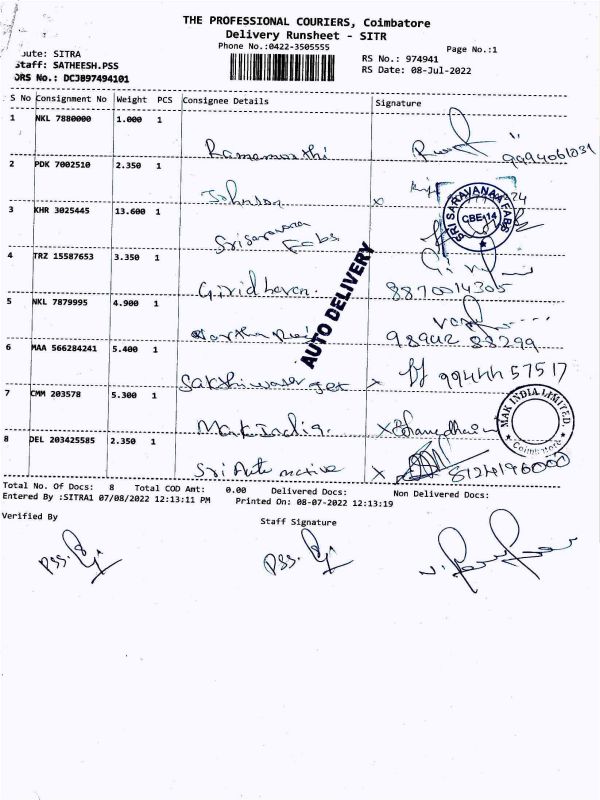 THE PROFESSIONAL COURIERS, Coimbatore
Delivery Runsheet - SITR
Phone No.:0422-3505555
Page No.:1
oute: SITRA
Staff: SATHEESH.PSS
DRS No.: DCJB97494101
RS No.: 974941
RS Date: 08-Jul-2022
S No Consignment No Weight PCS Consignee Details Signature
1 NKL 7880000 1.000 1
Ramamoorthi 9994061031
2 PDK 7002510 2.350 1
Johnson x
3 KHR 3025445 13.600 1
Srisaravana Fabs
SRI SARAVANA FABS CBE-14
4 TRZ 15587653 3.350 1
Giridharan. 8870014305
AUTO DELIVERY
5 NKL 7879995 4.900 1
98942 88299
6 MAA 566284241 5.400 1
Sakthi water jet x 99444 57517
7 CMM 203578 5.300 1
Mak India. x
MAK INDIA LIMITED. Coimbatore
8 DEL 203425585 2.350 1
Sri Automotive x 8124196000
Total No. Of Docs: 8 Total COD Amt: 0.00 Delivered Docs: Non Delivered Docs:
Entered By :SITRA1 07/08/2022 12:13:11 PM Printed On: 08-07-2022 12:13:19
Verified By
Staff Signature
PSS. PSS.